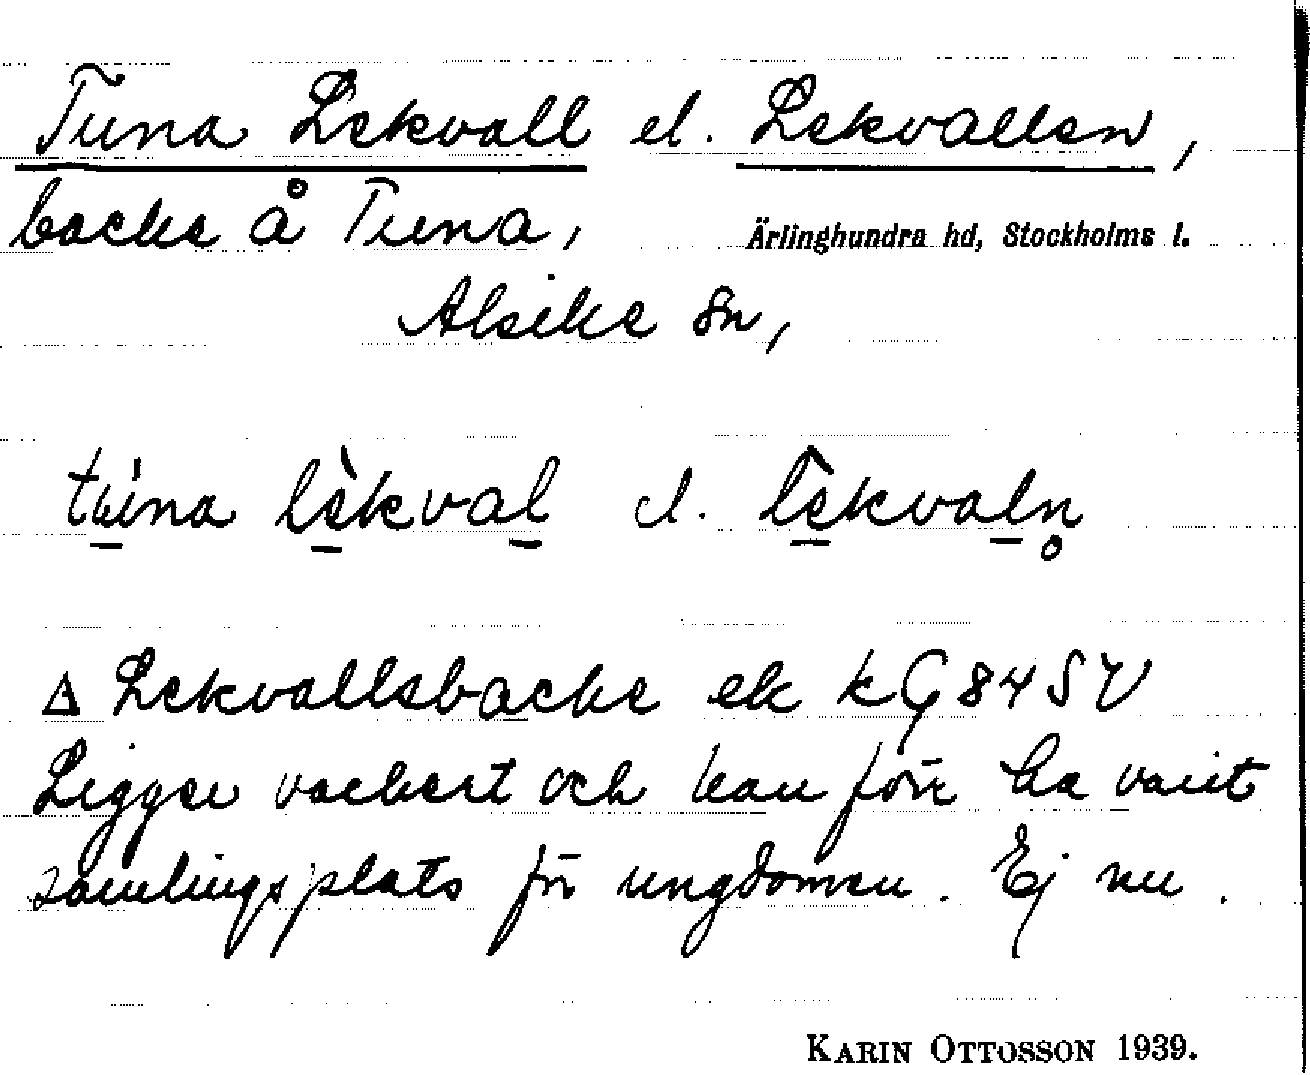 Tuna Lekvall el. Lekvallen,
backe å Tuna, Ärlinghundra hd, Stockholms l.
Alsike sn,
tu̱na lè̱kvaḻ el. lè̱kvaḻn̥
Lekvallsbacke ek kG 84 SV
Ligger vackert och kan förr ha varit
samlingsplats för ungdomen. Ej nu.
KARIN OTTOSSON 1939.